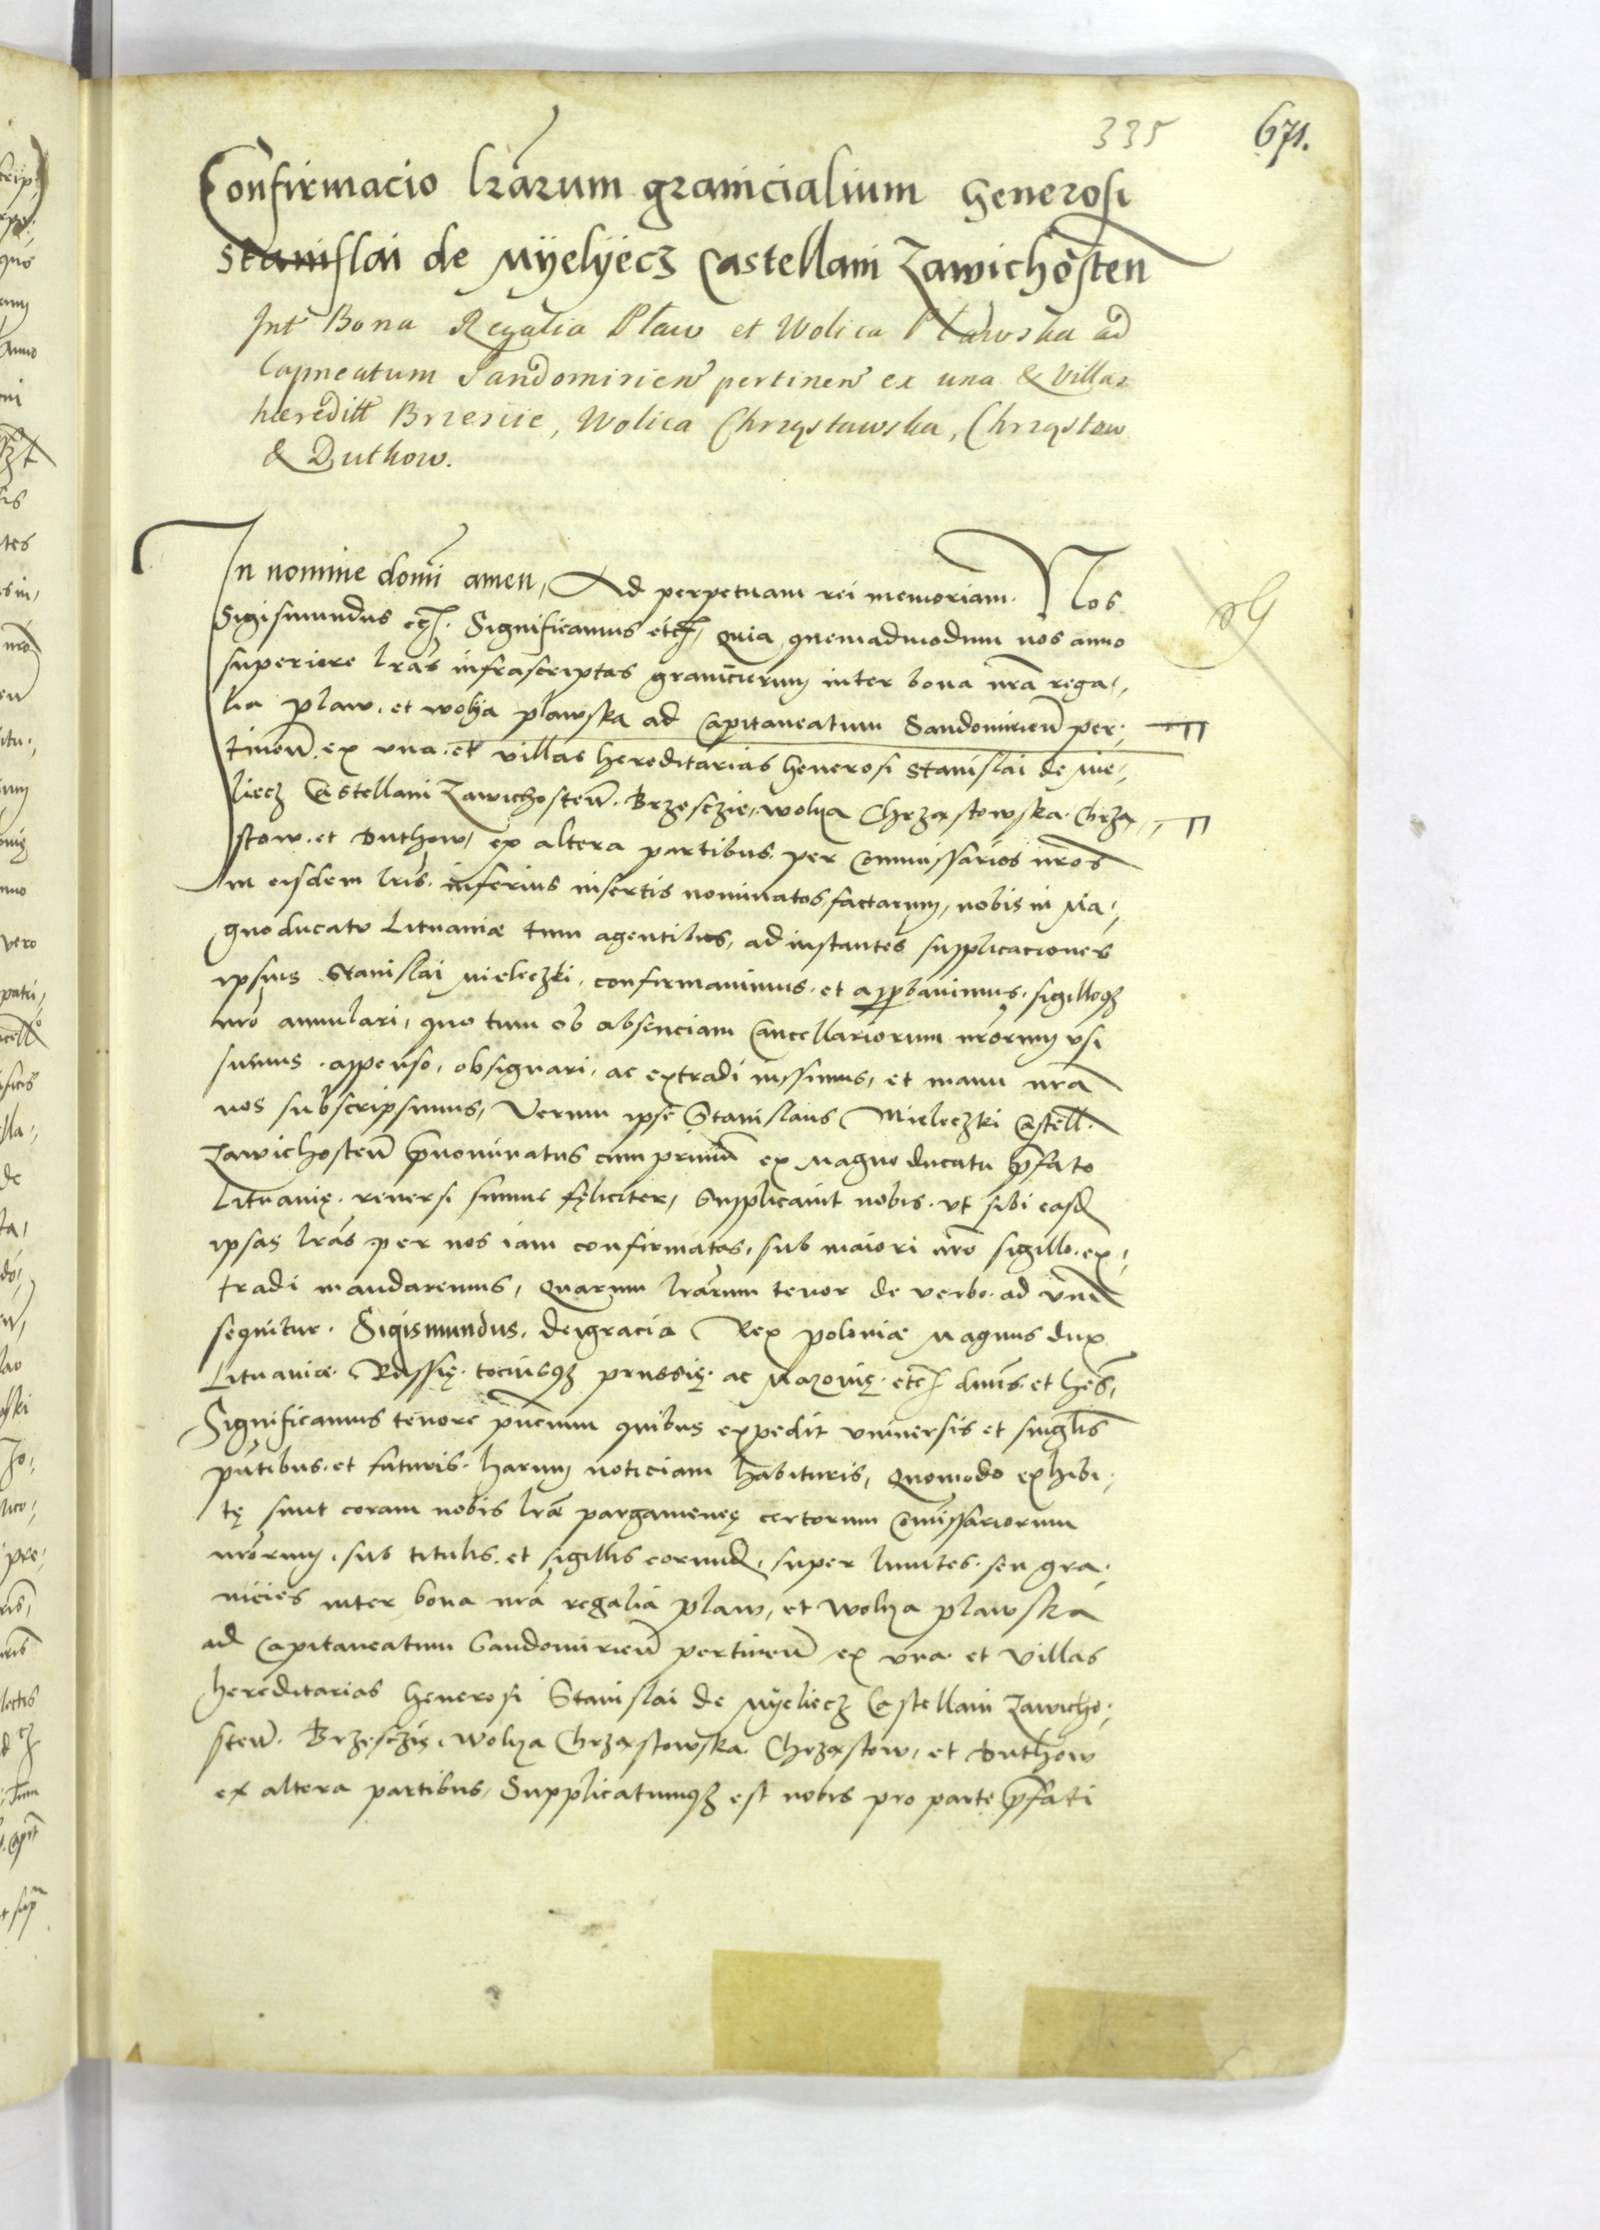 335 671.
Confirmacio lrarum granicialium Generosi
Stanislai de Myelyecz Castellani Zawichosten
Int Bona Regalia Plaw et Wolica Plawska ad
Capneatum Sandomirien pertinen ex una & Villas
hæredit Brzescie, Wolica Chrzystawska, Chrzqstow
& Duthow.
In nomine domi amen, Ad perpetuam rei memoriam. Nos
Sigismundus etc. Significamus etc, Quia quemadmodum nos anno
superiore lras infrascriptas granicierum inter bona nra rega,
lia Plaw. et Wolya plawska ad Capitaneatum Sandomirien per,
tinen. ex vna. et villas hereditarias Generosi Stanislai de Mie,
liecz Castellani Zawichosten. Brzesczie, Wolya Chrząstowska. Chrzą,
stow. et Duthow, ex altera partibus. per Commissarios nros
in eisdem lris. inferius insertis nominatos factarum, nobis in Ma,
gnoducatu Lituaniæ tum agentibus, ad instantes supplicaciones
ipsius Stanislai Mieleczki, confirmauimus. et approbauimus. sigilloqz
nro annulari, quo tum ob absenciam Cancellariorum nrorum vsi
sumus. appenso, obsignari, ac extradi iussimus, et manu nra
nos subscripsimus, Verum ipse Stanislaus Mieleczki Castell.
Zawichosten prenominatus cum primum ex Magno ducatu prefato
Lituanię. reuersi sumus fęliciter, Supplicauit nobis. vt sibi easd
ipsas lras per nos iam confirmatas, sub maiori nro sigillo. ex,
tradi mandaremus, Quarum lrarum tenor de verbo. ad vm
sequitur. Sigismundus. Deigracia Rex poloniæ Magnus dux
Lituaniæ. Russię. tociusqz prussię. ac Mazouię. etc dnus. et heres,
Significamus tenore pntium quibus expedit vniuersis et singlis
pntibus. et futuris. harum noticiam habituris, Quomodo exhibi,
tę sunt coram nobis lræ pargamenęę certorum Comissariorum
nrorum. sub titulis. et sigillis eorund, super limites. seu gra,
nicies inter bona nra regalia plaw, et Wolya plawska
ad Capitaneatum Sandomirien pertinen ex vna. et villas
hereditarias Generosi Stanislai de Myeliecz Castellani Zawicho,
sten. Brzesczię. Wolya Chrząstowska. Chrząstow, et Duthow
ex altera partibus, Supplicatumqz est nobis pro parte prefati